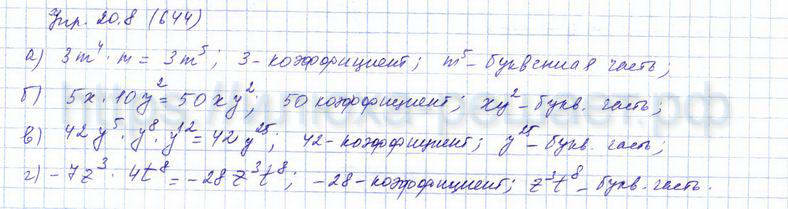 Упр. 20.8 (644)
а) 3m⁴ · m = 3m⁵; 3 - коэффициент; m⁵ - буквенная часть;
б) 5x · 10y² = 50xy²; 50 коэффициент; xy² - букв. часть;
в) 42y⁵ · y⁸ · y¹² = 42y²⁵; 42 - коэффициент; y²⁵ - букв. часть;
г) -7z³ · 4t⁸ = -28z³t⁸; -28 - коэффициент; z³t⁸ - букв. часть.